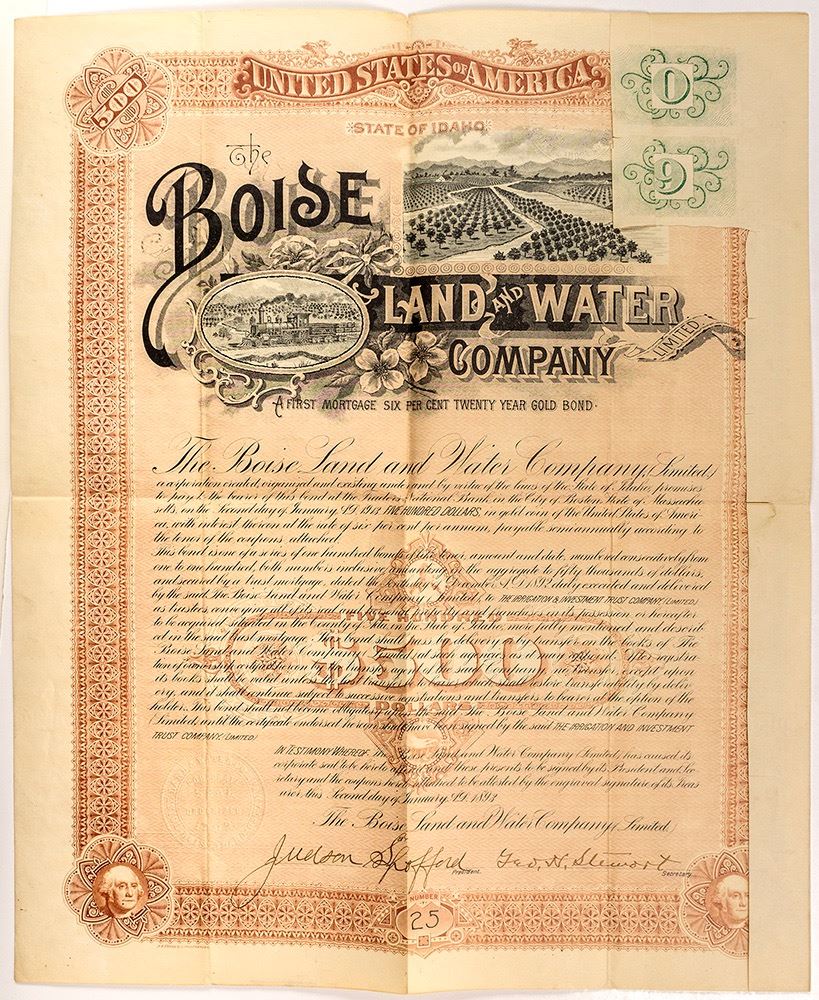 500
UNITED STATES OF AMERICA
0
STATE OF IDAHO
9
The
BOISE
LAND AND WATER
COMPANY
LIMITED
A FIRST MORTGAGE SIX PER CENT TWENTY YEAR GOLD BOND.
The Boise Land and Water Company, (Limited)
a corporation created, organized and existing under and by virtue of the laws of the State of Idaho, promises
to pay to the bearer of this bond at the National Bank in the City of Boston State of Massachu-
setts, on the Second day of January, A.D. 1913 FIVE HUNDRED DOLLARS, in gold coin of the United States of Ameri-
ca, with interest thereon at the rate of six per cent per annum, payable semiannually according to
the tenor of the coupons attached.
This bond is one of a series of one hundred bonds of like tenor, amount and date, numbered consecutively from
one to one hundred, both numbers inclusive amounting in the aggregate to fifty thousands of dollars,
and secured by a trust mortgage, dated the day of December A.D. 1892, duly executed and delivered
by the said The Boise Land and Water Company (Limited), to THE IRRIGATION & INVESTMENT TRUST COMPANY (LIMITED)
as trustees, conveying all of its real and franchises in its possession or hereafter
to be acquired situated in the County of State of Idaho, more fully mentioned and describ-
ed in the said trust mortgage. This bond shall pass by delivery or by transfer on the books of The
Boise Land and Water Company (Limited), at such agencies as it may After registra-
tion of ownership certified hereon by the transfer agent of the said Company no transfer except upon
its books shall be valid unless the last transfer which shall restore transferability by deliv-
ery, and it shall continue subject to successive registrations and transfers to bearer at the option of the
holder. This bond shall not become obligatory upon The Boise Land and Water Company
(Limited), until the certificate endorsed hereon shall have been signed by the said THE IRRIGATION AND INVESTMENT
TRUST COMPANY (LIMITED)
FIVE HUNDRED
$500
DOLLARS
IN TESTIMONY WHEREOF, The Boise Land and Water Company (Limited) has caused its
corporate seal to be hereto affixed and these presents to be signed by its President and Sec-
retary and the coupons hereto attached to be attested by the engraved signature of its Treas-
urer, this Second day of January, A.D. 1893
The Boise Land and Water Company (Limited)
Judson Spofford President. Geo. H. Stewart Secretary.
NUMBER
25